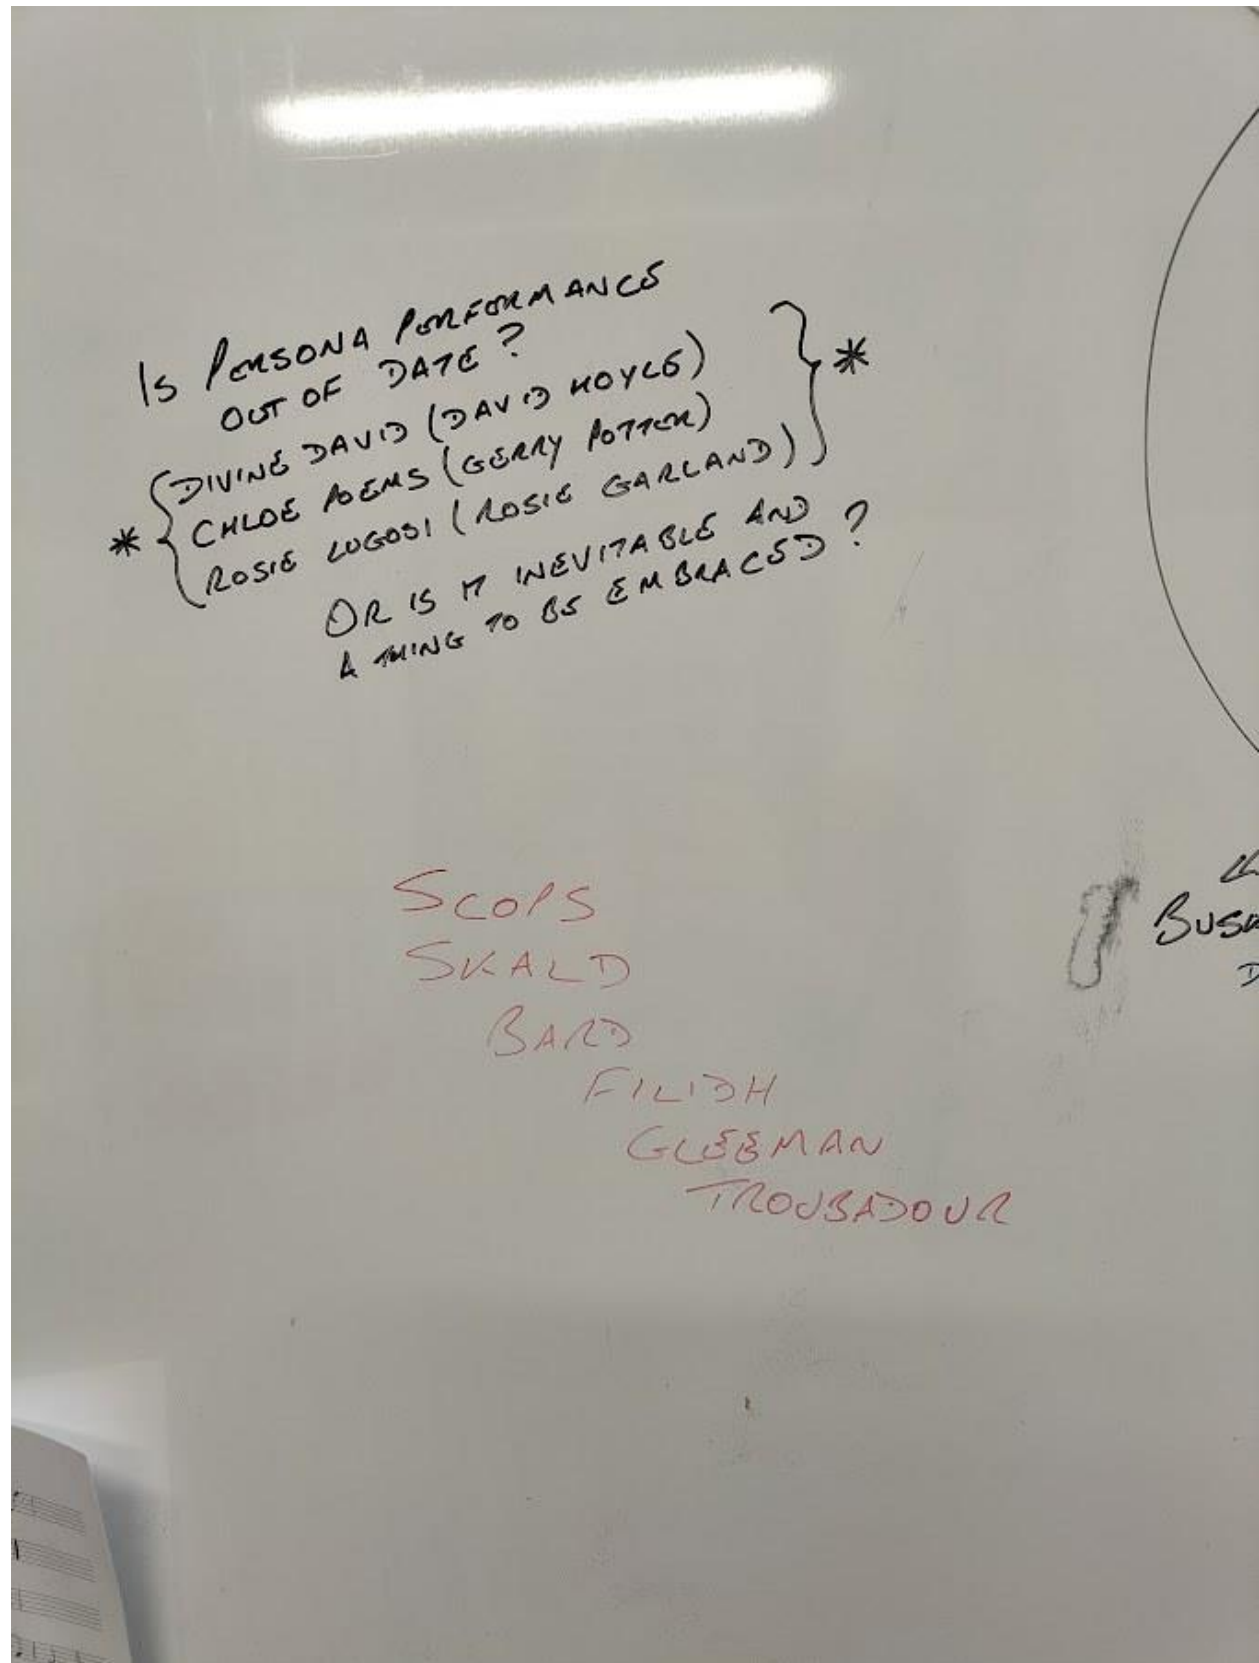 IS PERSONA PERFORMANCE
OUT OF DATE?
* { DIVINE DAVID (DAVID HOYLE) } *
CHLOE POEMS (GERRY POTTER)
ROSIE LUGOSI (ROSIE GARLAND)
OR IS IT INEVITABLE AND
A THING TO BE EMBRACED?
SCOPS
SKALD
BARD
FILIDH
GLEEMAN
TROUBADOUR